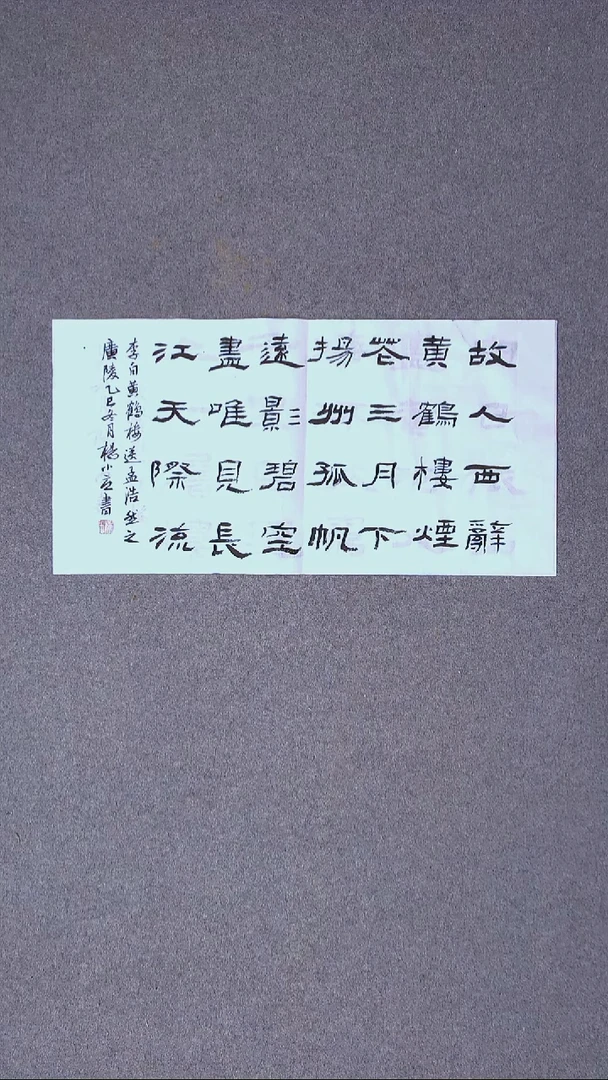 故人西辭
黄鶴樓煙
花三月下
揚州孤帆
遠影碧空
盡唯見長
江天際流
李白黄鶴樓送孟浩然之
廣陵乙巳冬月楊小京書